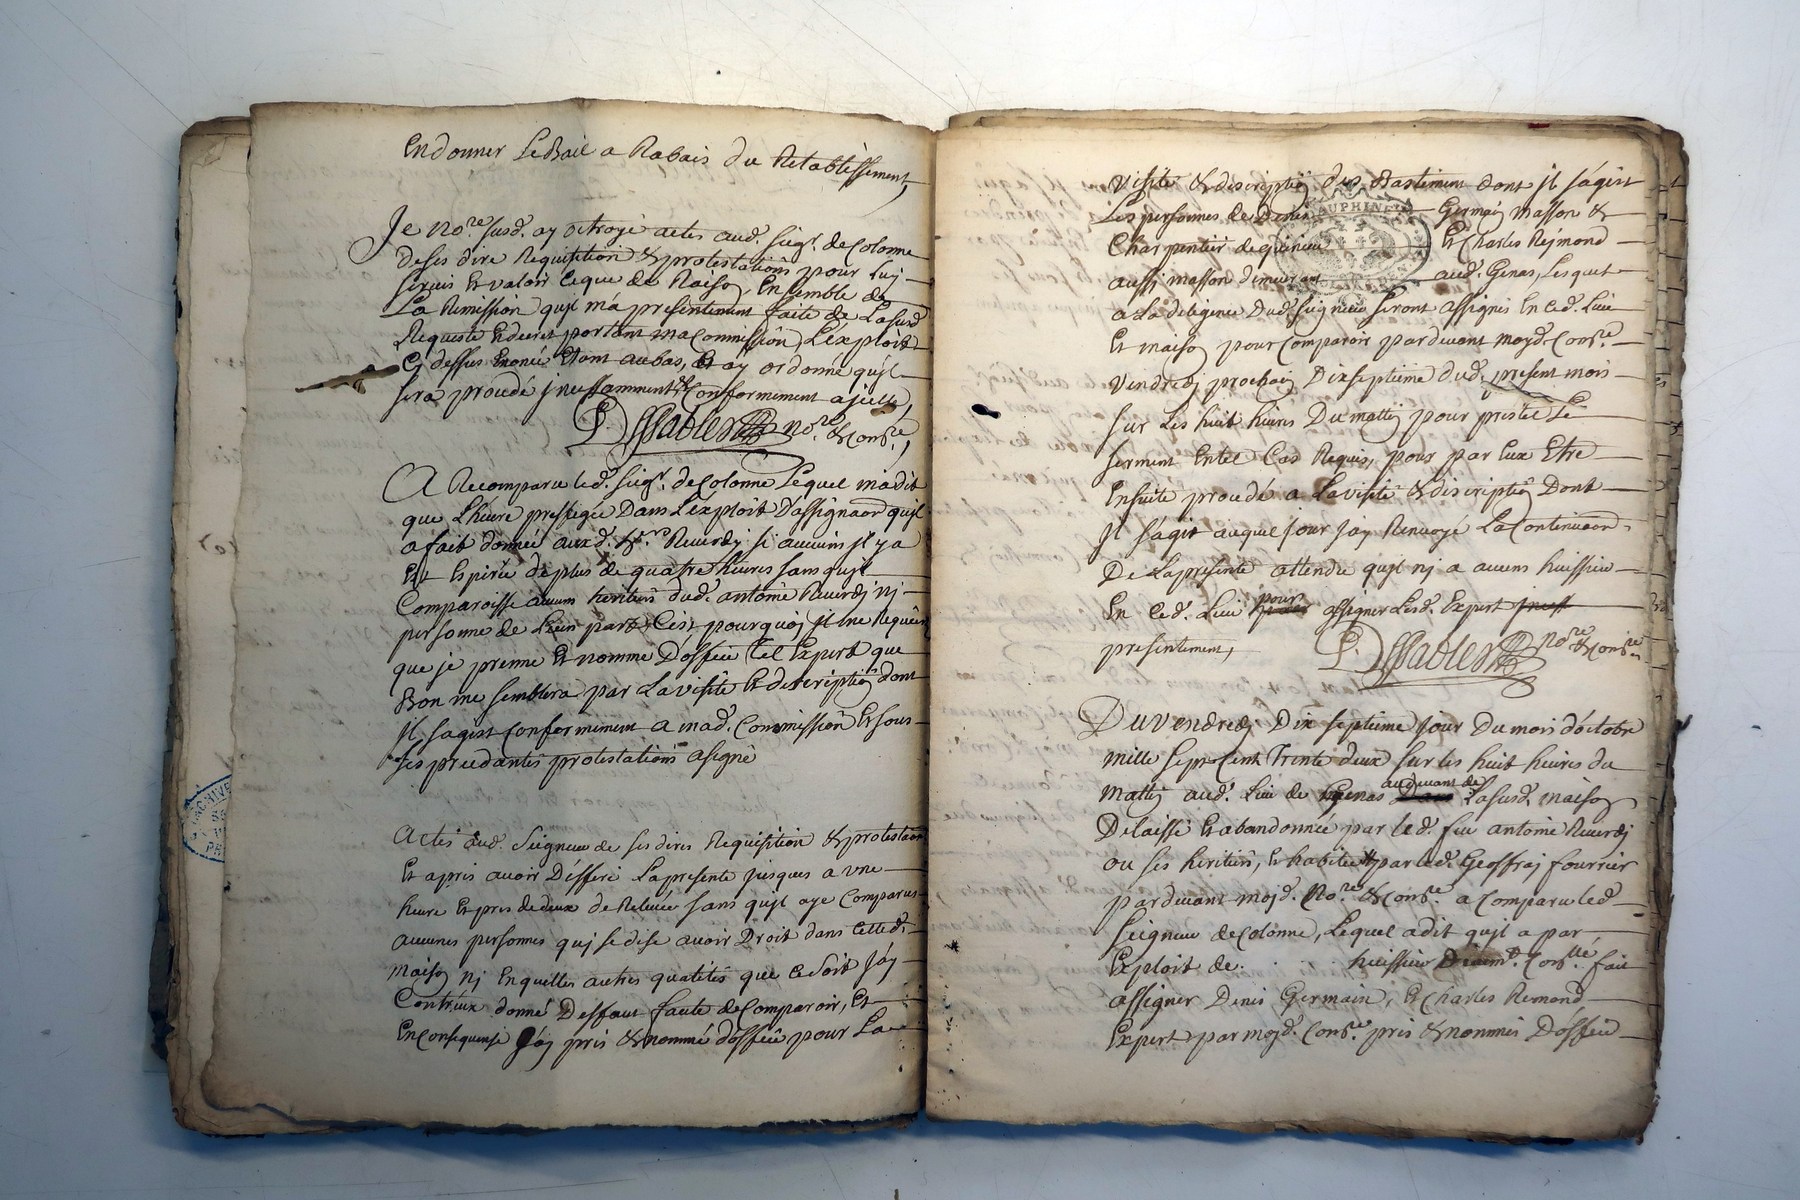 En donner Le Bail a Rabais du Retablissement,
Je No.re susd. ay octroyé actes aud. Seig.r de Colonne
de ses dire Requisition & protestations pour luy
servir Et valoir ce que de Raison, Ensemble de
La Remission quil ma presentement faite de La susd.
Requeste Et decret portant ma Commission L'exploit
Cy dessus Enoncé Etant au bas, Et ay ordonné quil
sera procedé jncessamment & Conformement a jcelle,
P. Dssables no.re & Com.re,
A Recomparu led. Seig.r de Colonne Lequel ma dit
que L'heure presfigée Dans L'exploit D'assignaõn quil
a fait donnée auxd. h.rs Reverdy si aucuns jl y a
Est Expirée de plus de quatre heures sans quil
Comparoisse aucun heritiers dud. antoine Reverdy nj
personne de Leur part C'est pourquoy jl me Requiert
que je prenne Et nomme D'office Tel Expert que
Bon me semblera par La visite Et description dont
jl s'agist Conformement a mad. Commission Et sous
ses precedantes protestations a signé
Actes aud. Seigneur de ses dires Requisition & protestaõn
Et apres avoir Differé La presente jusques a vne
heure Et pres de deux de Relevée sans quil aye Comparus
aucunes personnes quj se dise avoir Droit dans Cette d.
Maison nj En quelles autres qualités que ce soit J'ay
Contr'eux donné Deffaut faute de Comparoir, Et
En Consequense J'ay pris & nommé d'office pour La
visite & description des Bastiment dont jl s'agist
Les personnes de Denis Germain masson &
Charpentier de Et Charles Rejmond
aussi masson demeurant aud. Genas, Lesquels
a La diligence Dud. Seigneur seront assignés En ced. Lieu
Et maison pour Comparoir pardevant moyd. Com.re
Vendredj prochain Dixseptieme dud. present mois
sur Les huit heures Du mattin pour prester Le
serment En tel Cas Requis, pour par Eux Etre
Ensuite procedé a La visite & description Dont
jl s'agit auquel jour jay Renvoyé La Continuaõn
De La presente attendu quil nj a aucuns huissier
En ced. Lieu pour assigner Lesd. Expert
presentement,
P. Dssables no.re & Com.re
Du vendredj Dix septieme jour Du mois d'octobre
mille sept Cent Trente deux sur les huit heures du
mattin aud. Lieu de Genas au devant de La susd. maison
Delaissé Et abandonnée par led. feu antoine Reverdj
ou ses heritiers, Et habitée par led. Geoffraj fourrier
pardevant moyd. No.re & Com.re a Comparu led.
Seigneur de Colonne, Lequel a dit quil a par
Exploit de . . . huissier fait
assigner Denis Germain, Et Charles Remond
Expert par moyd. Com.re pris & nommés D'office